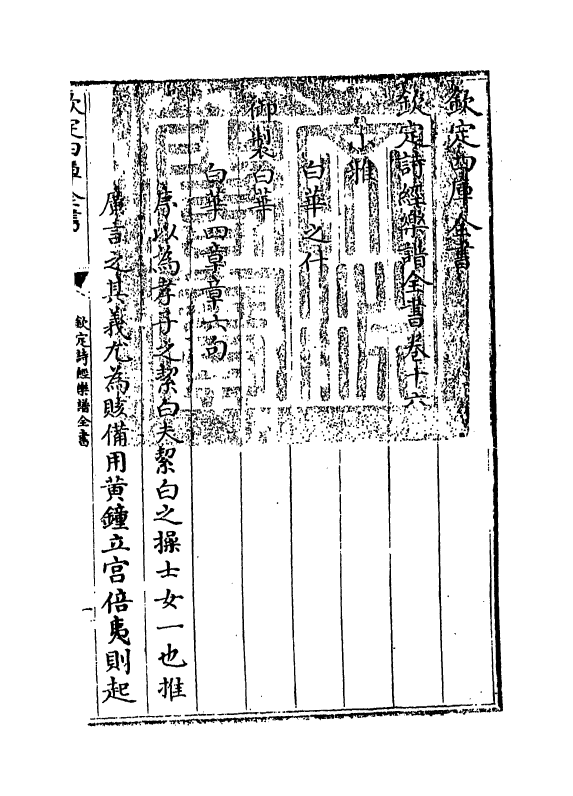 欽定四庫全書
欽定詩經樂譜全書卷十六
小雅
白華之什
御製白華
白華四章章六句
序以為孝子之絜白夫絜白之操士女一也推
廣言之其義尤為賅備用黃鐘立宮倍夷則起
欽定四庫全書
欽定詩經樂譜全書
一